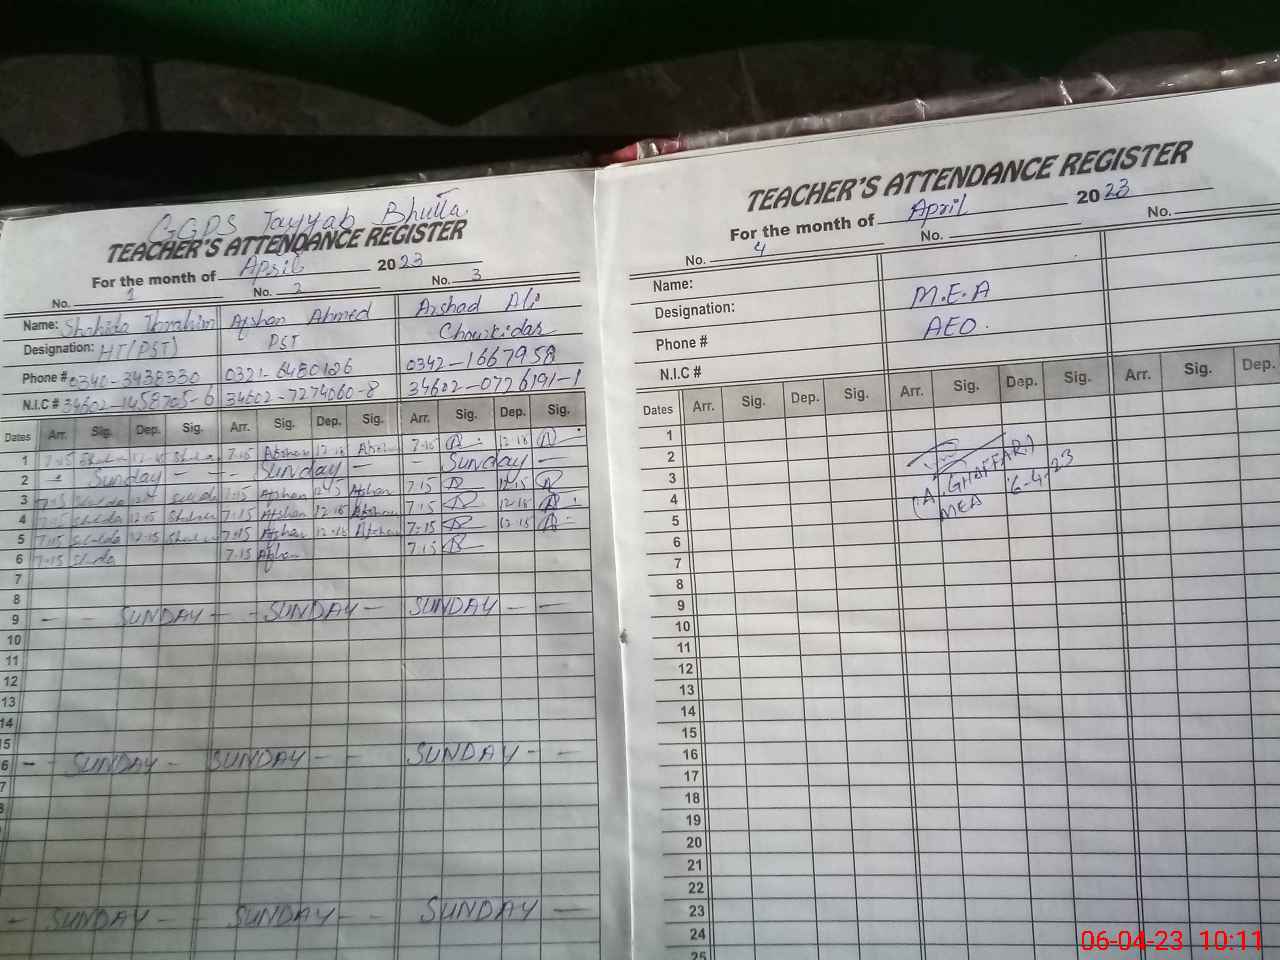 GGPS Tayyab Bhutta
TEACHER'S ATTENDANCE REGISTER
For the month of April 2023
No. 1 No. 2 No. 3
Name: Shahida Ibrahim Afshan Ahmed Arshad Ali
Designation: HT(PST) PST Chowkidar
Phone # 0340-3438330 0321-6480126 0342-1667958
N.I.C # 34602-1458705-6 34602-7274060-8 34602-0726191-1
Dates Arr. Sig. Dep. Sig. Arr. Sig. Dep. Sig. Arr. Sig. Dep. Sig.
1 7:15 12-15 7:15 Afshan 12-15 Afshan 7:15 12-15
2 - Sunday - - Sunday - - Sunday -
3 7:15 7:15 Afshan 12-15 Afshan 7:15 12-15
4 7:15 12-15 7:15 Afshan 12-15 Afshan 7:15 12-15
5 7:15 12-15 7:15 Afshan 12-15 Afshan 7:15 12-15
6 7:15 7:15 Afshan 7:15
7
8
9 - - SUNDAY - - SUNDAY - SUNDAY - -
10
11
12
13
14
15
16 - SUNDAY - SUNDAY - - SUNDAY - -
- SUNDAY - - SUNDAY - - SUNDAY -
TEACHER'S ATTENDANCE REGISTER
For the month of April 2023
No. 4 No. No.
Name:
Designation: M.E.A
Phone # AEO.
N.I.C #
Dates Arr. Sig. Dep. Sig. Arr. Sig. Dep. Sig. Arr. Sig. Dep.
1
2
3 (A. GHAFFAR)
4 MEA 6-4-23
5
6
7
8
9
10
11
12
13
14
15
16
17
18
19
20
21
22
23
24
25
06-04-23 10:11